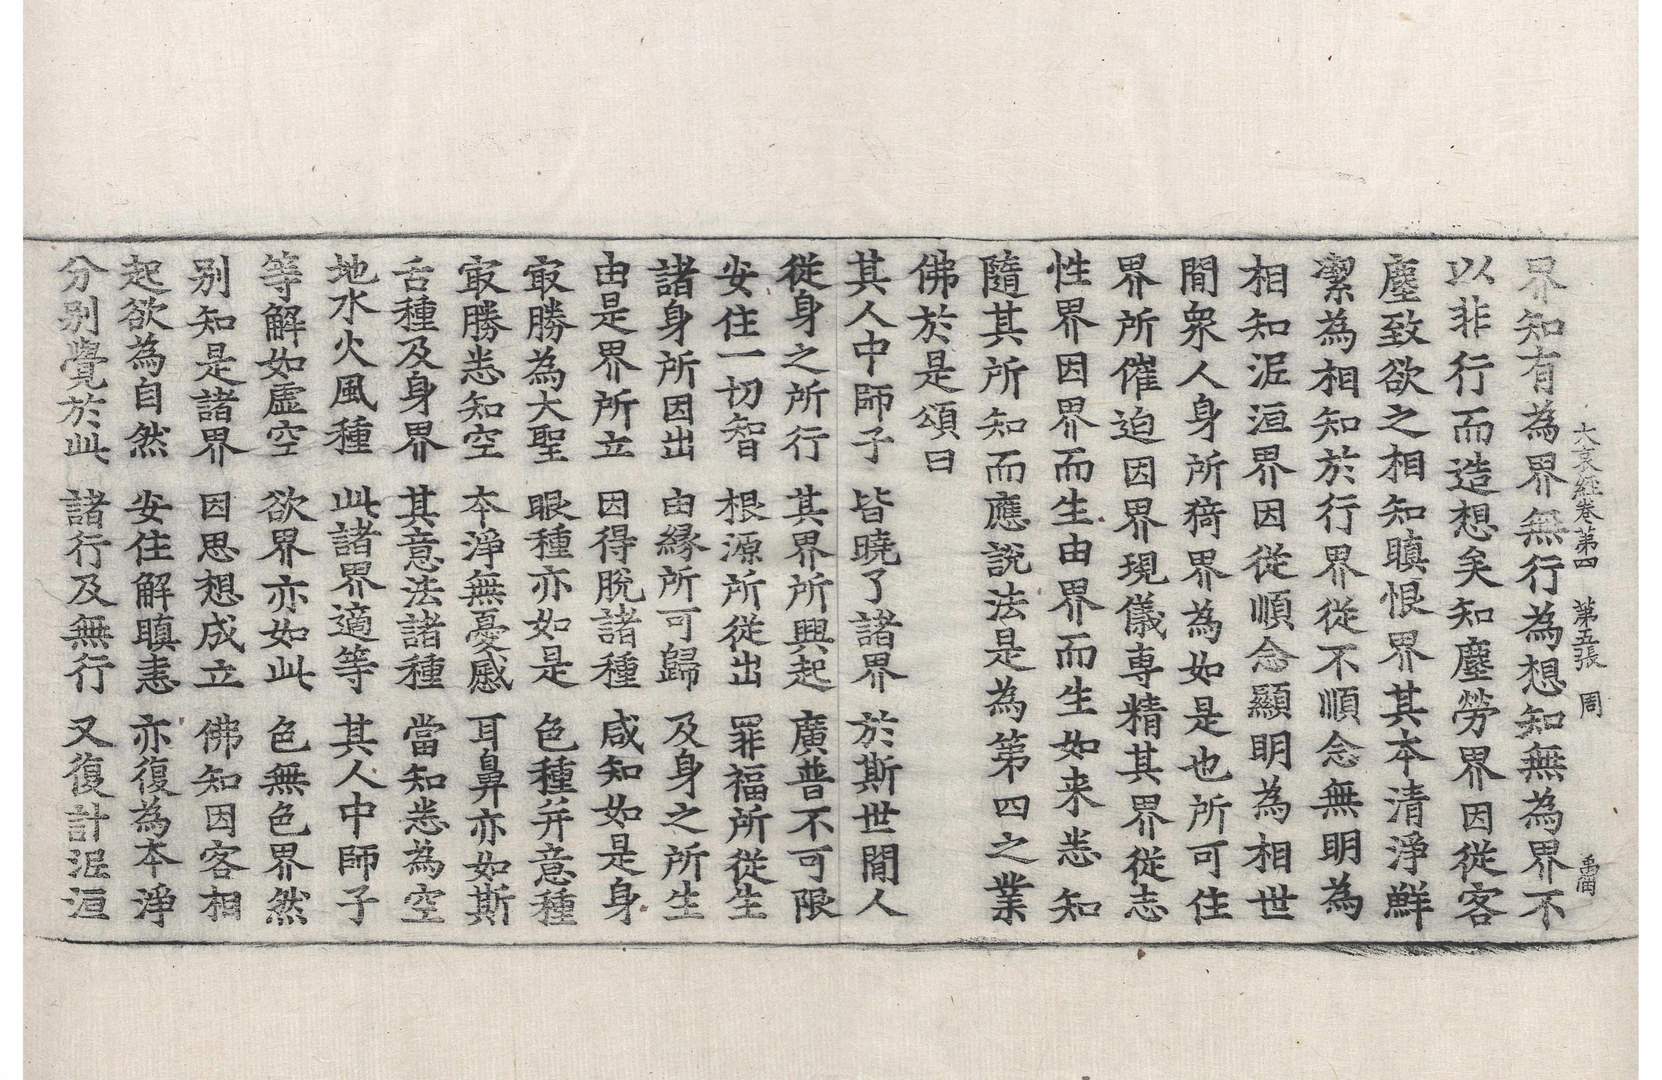 大哀經卷第四 第五張 周
界知有為界無行為想知無為界不
以非行而造想矣知塵勞界因從客
塵致欲之相知瞋恨界其本清淨鮮
潔為相知於行界從不順念無明為
相知泥洹界因從順念顯明為相世
間衆人身所猗界為如是也所可住
界所催迫因界現儀専精其界從志
性界因界而生由界而生如来悉知
隨其所知而應說法是為第四之業
佛於是頌曰
其人中師子 皆曉了諸界 於斯世間人
從身之所行 其界所興起 廣普不可限
安住一切智 根源所從出 罪福所從生
諸身所因出 由縁所可歸 及身之所生
由是界所立 因得脫諸種 咸知如是身
㝡勝為大聖 眼種亦如是 色種并意種
㝡勝悉知空 本淨無憂慼 耳鼻亦如斯
舌種及身界 其意法諸種 當知悉為空
地水火風種 此諸界適等 其人中師子
等解如虛空 欲界亦如此 色無色界然
别知是諸界 因思想成立 佛知因客相
起欲為自然 安住解瞋恚 亦復為本淨
分别覺於此 諸行及無行 又復計泥洹